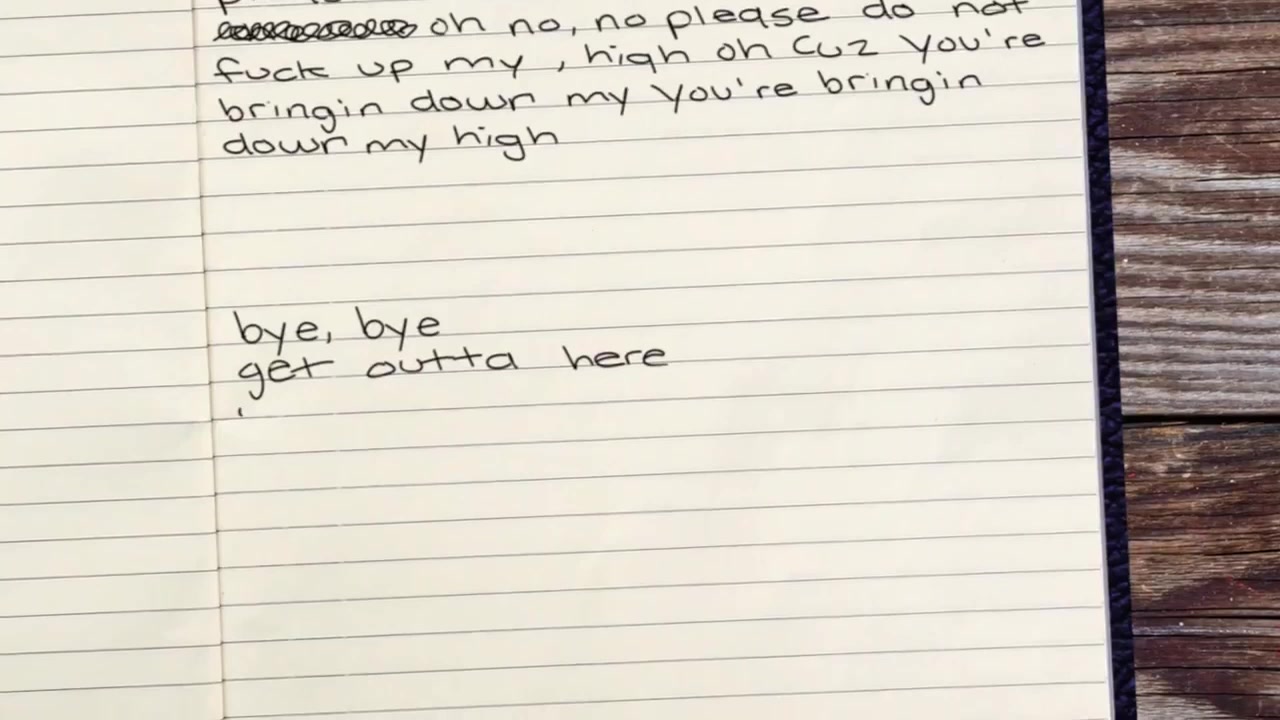 oh no, no please do not
fuck up my , high oh cuz you're
bringin down my you're bringin
down my high
bye, bye
get outta here